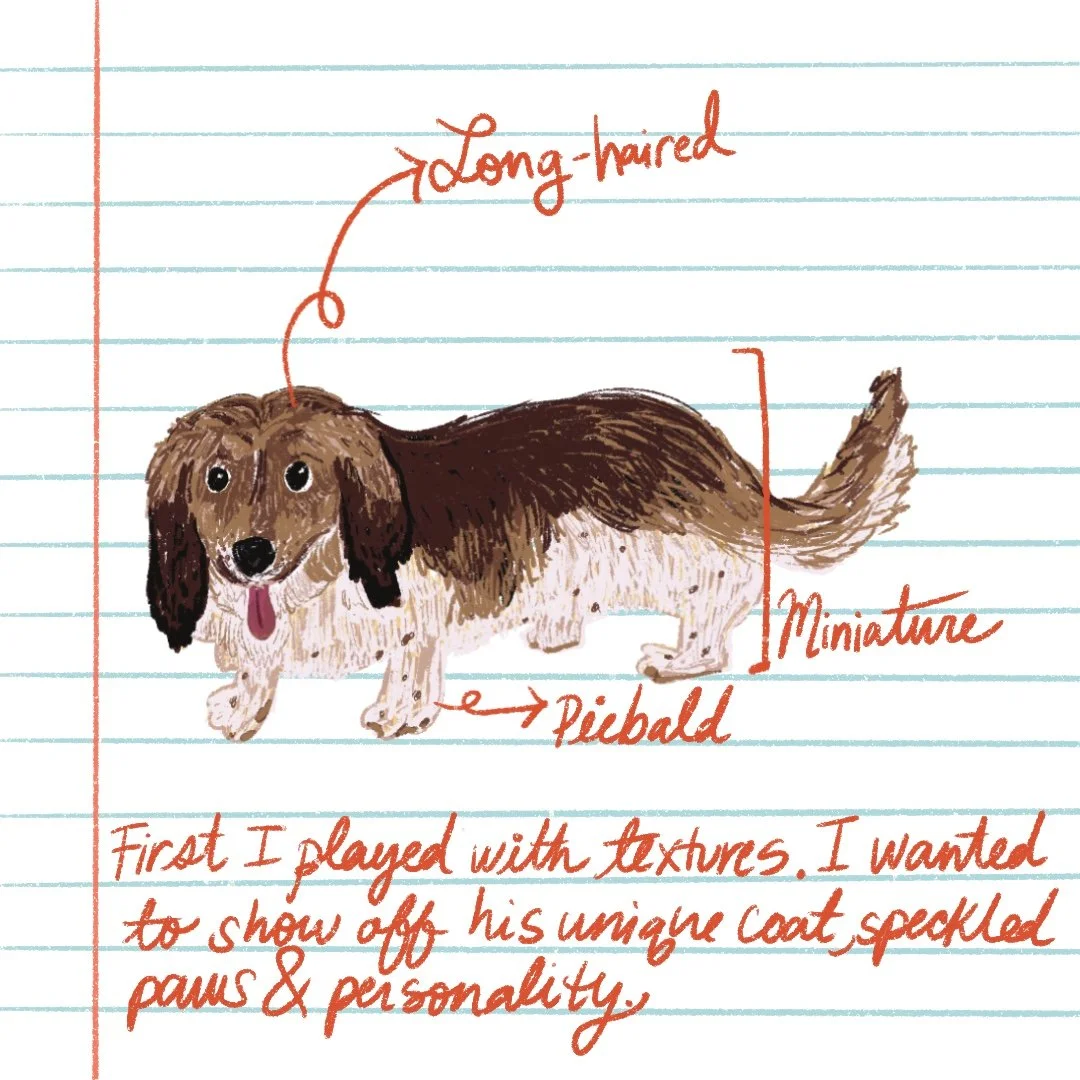 Long-haired
Miniature
Piebald
First I played with textures. I wanted
to show off his unique coat, speckled
paws & personality.